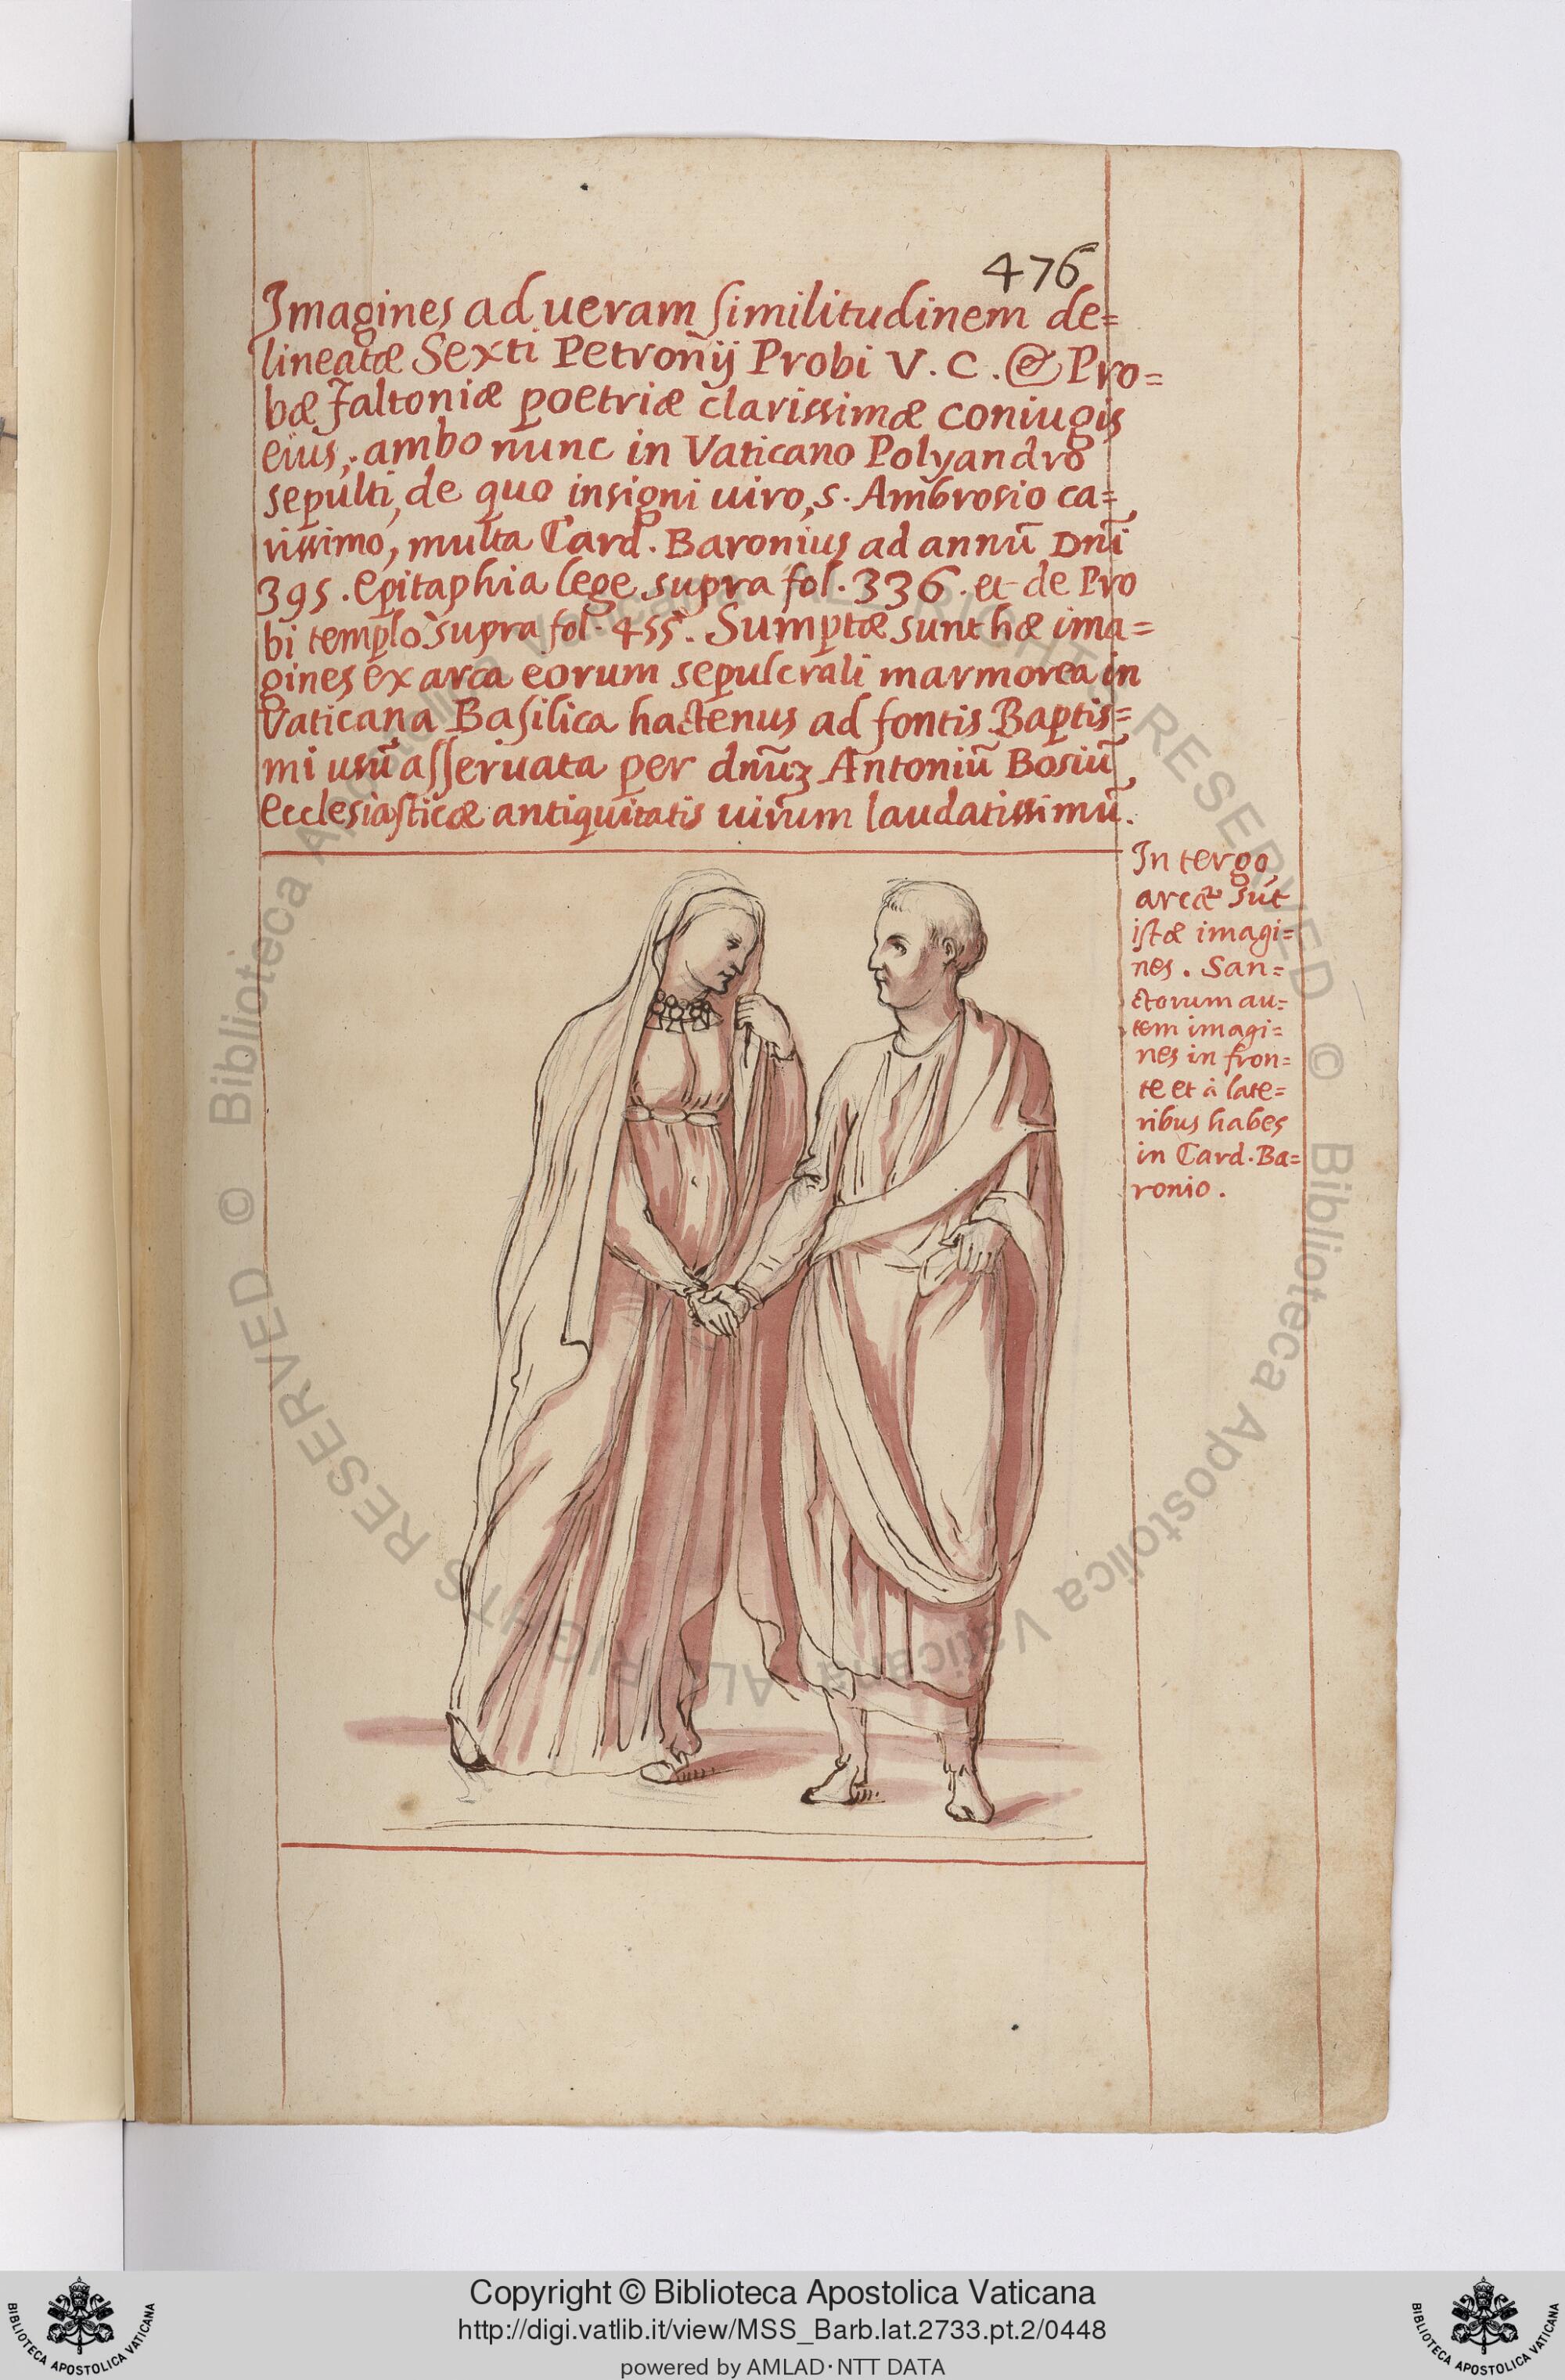 476
Imagines ad ueram similitudinem de=
lineatæ Sexti Petronij Probi V. C. & Pro=
bæ Faltoniæ poetriæ clarissimæ coniugis
eius, ambo nunc in Vaticano Polyandro
sepulti, de quo insigni uiro, S. Ambrosio ca=
rissimo, multa Card. Baronius ad annū Dnī
395. Epitaphia lege supra fol. 336. et de Pro
bi templo supra fol. 455. Sumptæ sunt hæ ima=
gines ex arca eorum sepulcrali marmorea in
Vaticana Basilica hactenus ad fontis Baptis=
mi usū asseruata per dnūz Antoniū Bosiū,
Ecclesiasticæ antiquitatis uirum laudatissimū.
In tergo,
arcæ sūt
istæ imagi=
nes. San=
ctorum au=
tem imagi=
nes in fron=
te et à late=
ribus habes
in Card. Ba=
ronio.
© Biblioteca Apostolica Vaticana ALL RIGHTS RESERVED
© Biblioteca Apostolica Vaticana ALL RIGHTS RESERVED
Copyright © Biblioteca Apostolica Vaticana
http://digi.vatlib.it/view/MSS_Barb.lat.2733.pt.2/0448
powered by AMLAD·NTT DATA
BIBLIOTECA APOSTOLICA VATICANA
BIBLIOTECA APOSTOLICA VATICANA